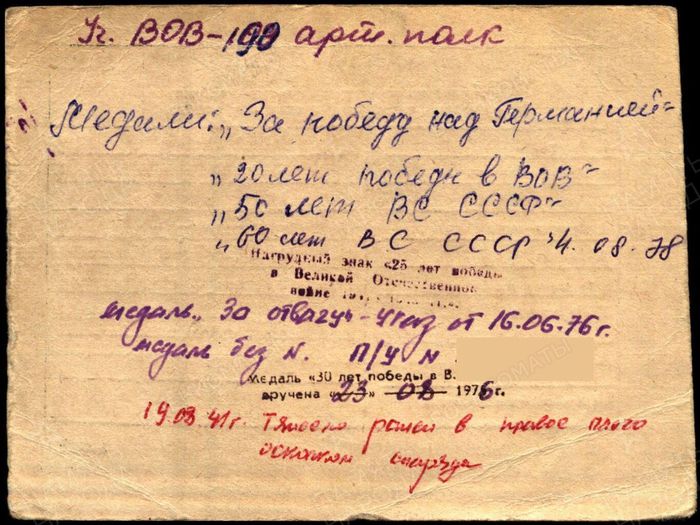 Уч. ВОВ - 190 арт. полк
Медали: „За победу над Германией"
„20 лет победы в ВОВ"
„50 лет ВС СССР"
„60 лет ВС СССР 4.08.78
Нагрудный знак «25 лет победы
в Великой Отечественной
войне
медаль „За отвагу" - указ от 16.06.76 г.
медаль без N. П/У N
Медаль «30 лет победы в В.
вручена «23» 08 1976 г.
19.03.41г. Тяжело ранен в правое плечо
осколком снаряда